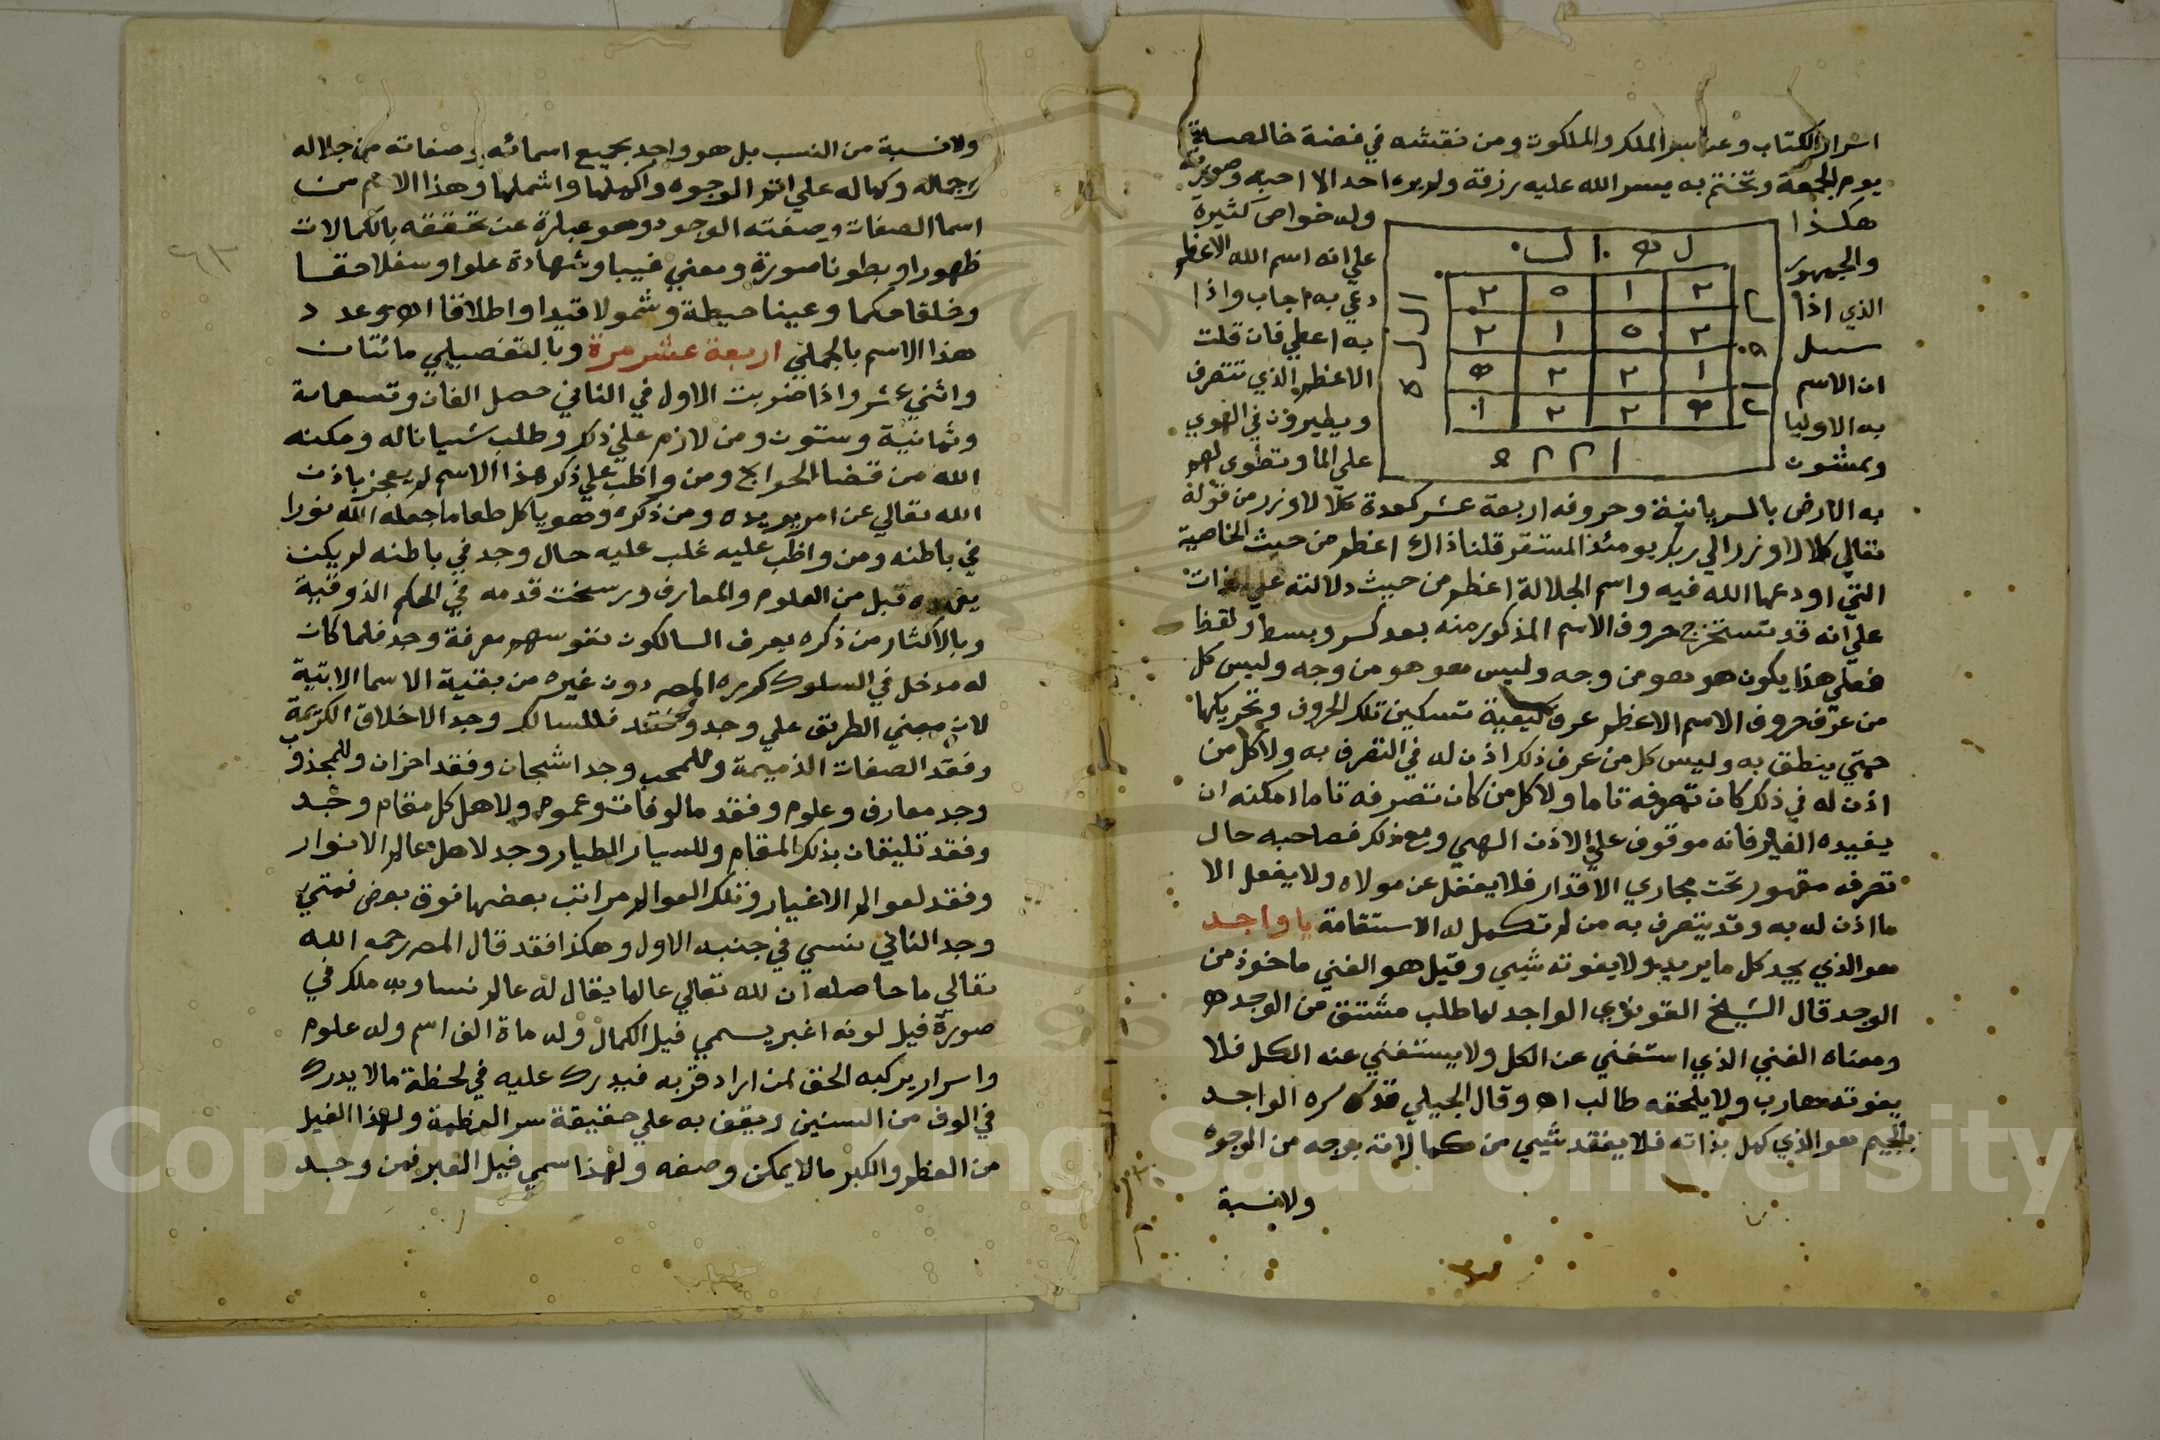 اسرار الكتاب وعن سر الملك والملكوت ومن نقشه في فضة خالصة
يوم الجمعة وتختم به يسر الله عليه رزقه ولم يره احد الا احبه وصورته
هكذا
والجمهور
الذي اذا
سيل
ان الاسم
به الاوليا
ويمشون
ل ه ا ل
٢ ١ ٥ ٢
٢ ٥ ١ ٢
١ ٢ ٢ ٥
٥ ٢ ٢ ١
وله خواص كثيرة
علي انه اسم الله الاعظم
دعي به اجاب واذا
به اعطي فان قلت
الاعظم الذي تتصرف
ويطيرون في الهوي
علي الما وتطوي لهم
به الارض بالسريانية وحروفه اربعة عشر كعدة كلا لا وزر من قوله
تعالي كلا لا وزر الي ربك يومئذ المستقر قلنا ذاك اعظم من حيث الخاصية
التي اودعها الله فيه واسم الجلالة اعظم من حيث دلالته علي الذات
علي انه قد تستخرج حروف الاسم المذكور منه بعد كسر وبسط ولفظا
فعلي هذا يكون هو هو من وجه وليس هو هو من وجه وليس كل
من عرف حروف الاسم الاعظم عرف كيفية تسكين تلك الحروف وتحريكها
حتي ينطق به وليس كل من عرف ذلك اذن له في التصرف به ولا كل من
اذن له في ذلك كان تصرفه تاما ولا كل من كان تصرفه تاما امكنه ان
يفيده الغير فانه موقوف علي الاذن الهي ومع ذلك فصاحبه حال
تصرفه مقهور تحت مجاري الاقدار فلا يغفل عن مولاه ولا يفعل الا
ما اذن له به وقد يتصرف به من لم تكمل له الاستقامة يا واجد
هو الذي يجد كل ما يريد ولا يفوته شيي وقيل هو الغني ماخوذ من
الوجد قال الشيخ القونوي الواجد لما طلب مشتق من الوجد
ومعناه الغني الذي استغني عن الكل ولا يستغني عنه الكل فلا
يفوته هارب ولا يلحقه طالب اه وقال الجيلي قدس سره الواجد
بالجيم هو الذي كمل بذاته فلا يفقد شيي من كمالاته بوجه من الوجوه
ولا نسبة
ولا نسبة من النسب بل هو واجد بجميع اسمائه وصفاته من جلاله
وجماله وكماله علي اتم الوجوه واكملها واشملها وهذا الاسم من
اسما الصفات وصفته الوجود وهو عبارة عن تحققه بالكمالات
ظهورا وبطونا صورة ومعني غيبا وشهادة علوا وسفلا حقا
وخلقا حكما وعينا حيطة وشمولا قيدا واطلاقا اه وعدد
هذا الاسم بالجملي اربعة عشر مرة وبالتفصيلي مائتان
واثني عشر واذا ضربت الاول في الثاني حصل الفان وتسعماية
وثمانية وستون ومن لازم علي ذكر وطلب شيا ناله ومكنه
الله من قضا الحوايج ومن واظب علي ذكر هذا الاسم لم يعجز باذن
الله تعالي عن امر يريده ومن ذكره وهو ياكل طعاما جعله الله نورا
في باطنه ومن واظب عليه غلب عليه حال وجد في باطنه لم يكن
يعهده قبل من العلوم والمعارف ورسخت قدمه في الحكم الذوقية
وبالاكثار من ذكره يعرف السالكون نفوسهم معرفة وجد فلما كان
له مدخل في السلوك كرره المص دون غيره من بقية الاسما الاتية
لان مبني الطريق علي وجد وفقد فللسالك وجد الاخلاق الكريمة
وفقد الصفات الذميمة وللمحب وجد اشجان وفقد احزان وللمجذوب
وجد معارف وعلوم وفقد مالوفات وعموم ولاهل كل مقام وجد
وفقد تليقان بذلك المقام وللسيار الطيار وجد لاهل معالم الانوار
وفقد لعوالم الاغيار وتلك العوالم مراتب بعضها فوق بعض فمتي
وجد الثاني نسي في جنبه الاول وهكذا فقد قال المص رحمه الله
تعالي ما حاصله ان لله تعالي عالما يقال له عالم ملك في
صورة فيل لونه اغبر يسمي فيل الكمال وله ماة الف اسم وله علوم
واسرار يركبه الحق لمن اراد قربه فيدرك عليه في لحظة ما لا يدرك
في الوف من السنين ويقف به علي حقيقة سر العظمة ولهذا الفيل
من العظم والكبر ما لا يمكن وصفه ولهذا سمي فيل الغبر فمن وجد
Copyright © King Saud University